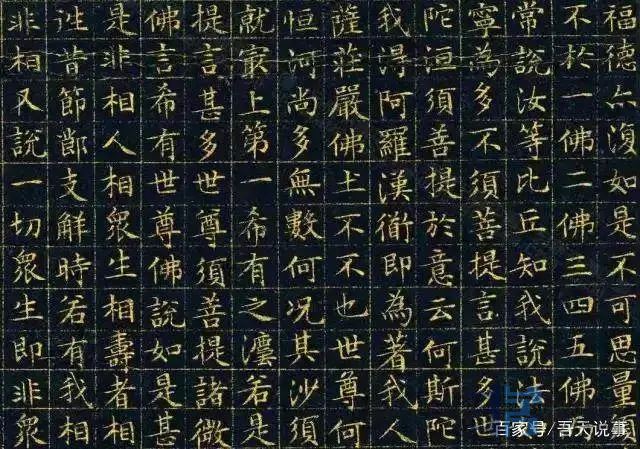 福德亦復如是不可思量須
不於一佛二佛三四五佛
常說汝等比丘知我說法
寧為多不須菩提言甚多世
陀洹須菩提於意云何斯陀
我得阿羅漢衜即為著我人
薩莊嚴佛土不不也世尊何
恒河尚多無數何況其沙須
就冣上第一希有之灋若是
提言甚多世尊須菩提諸微
佛言希有世尊佛說如是甚
是非相人相眾生相壽者相
往昔節節支解時若有我相
非相又說一切眾生即非眾
百家号/吾天说